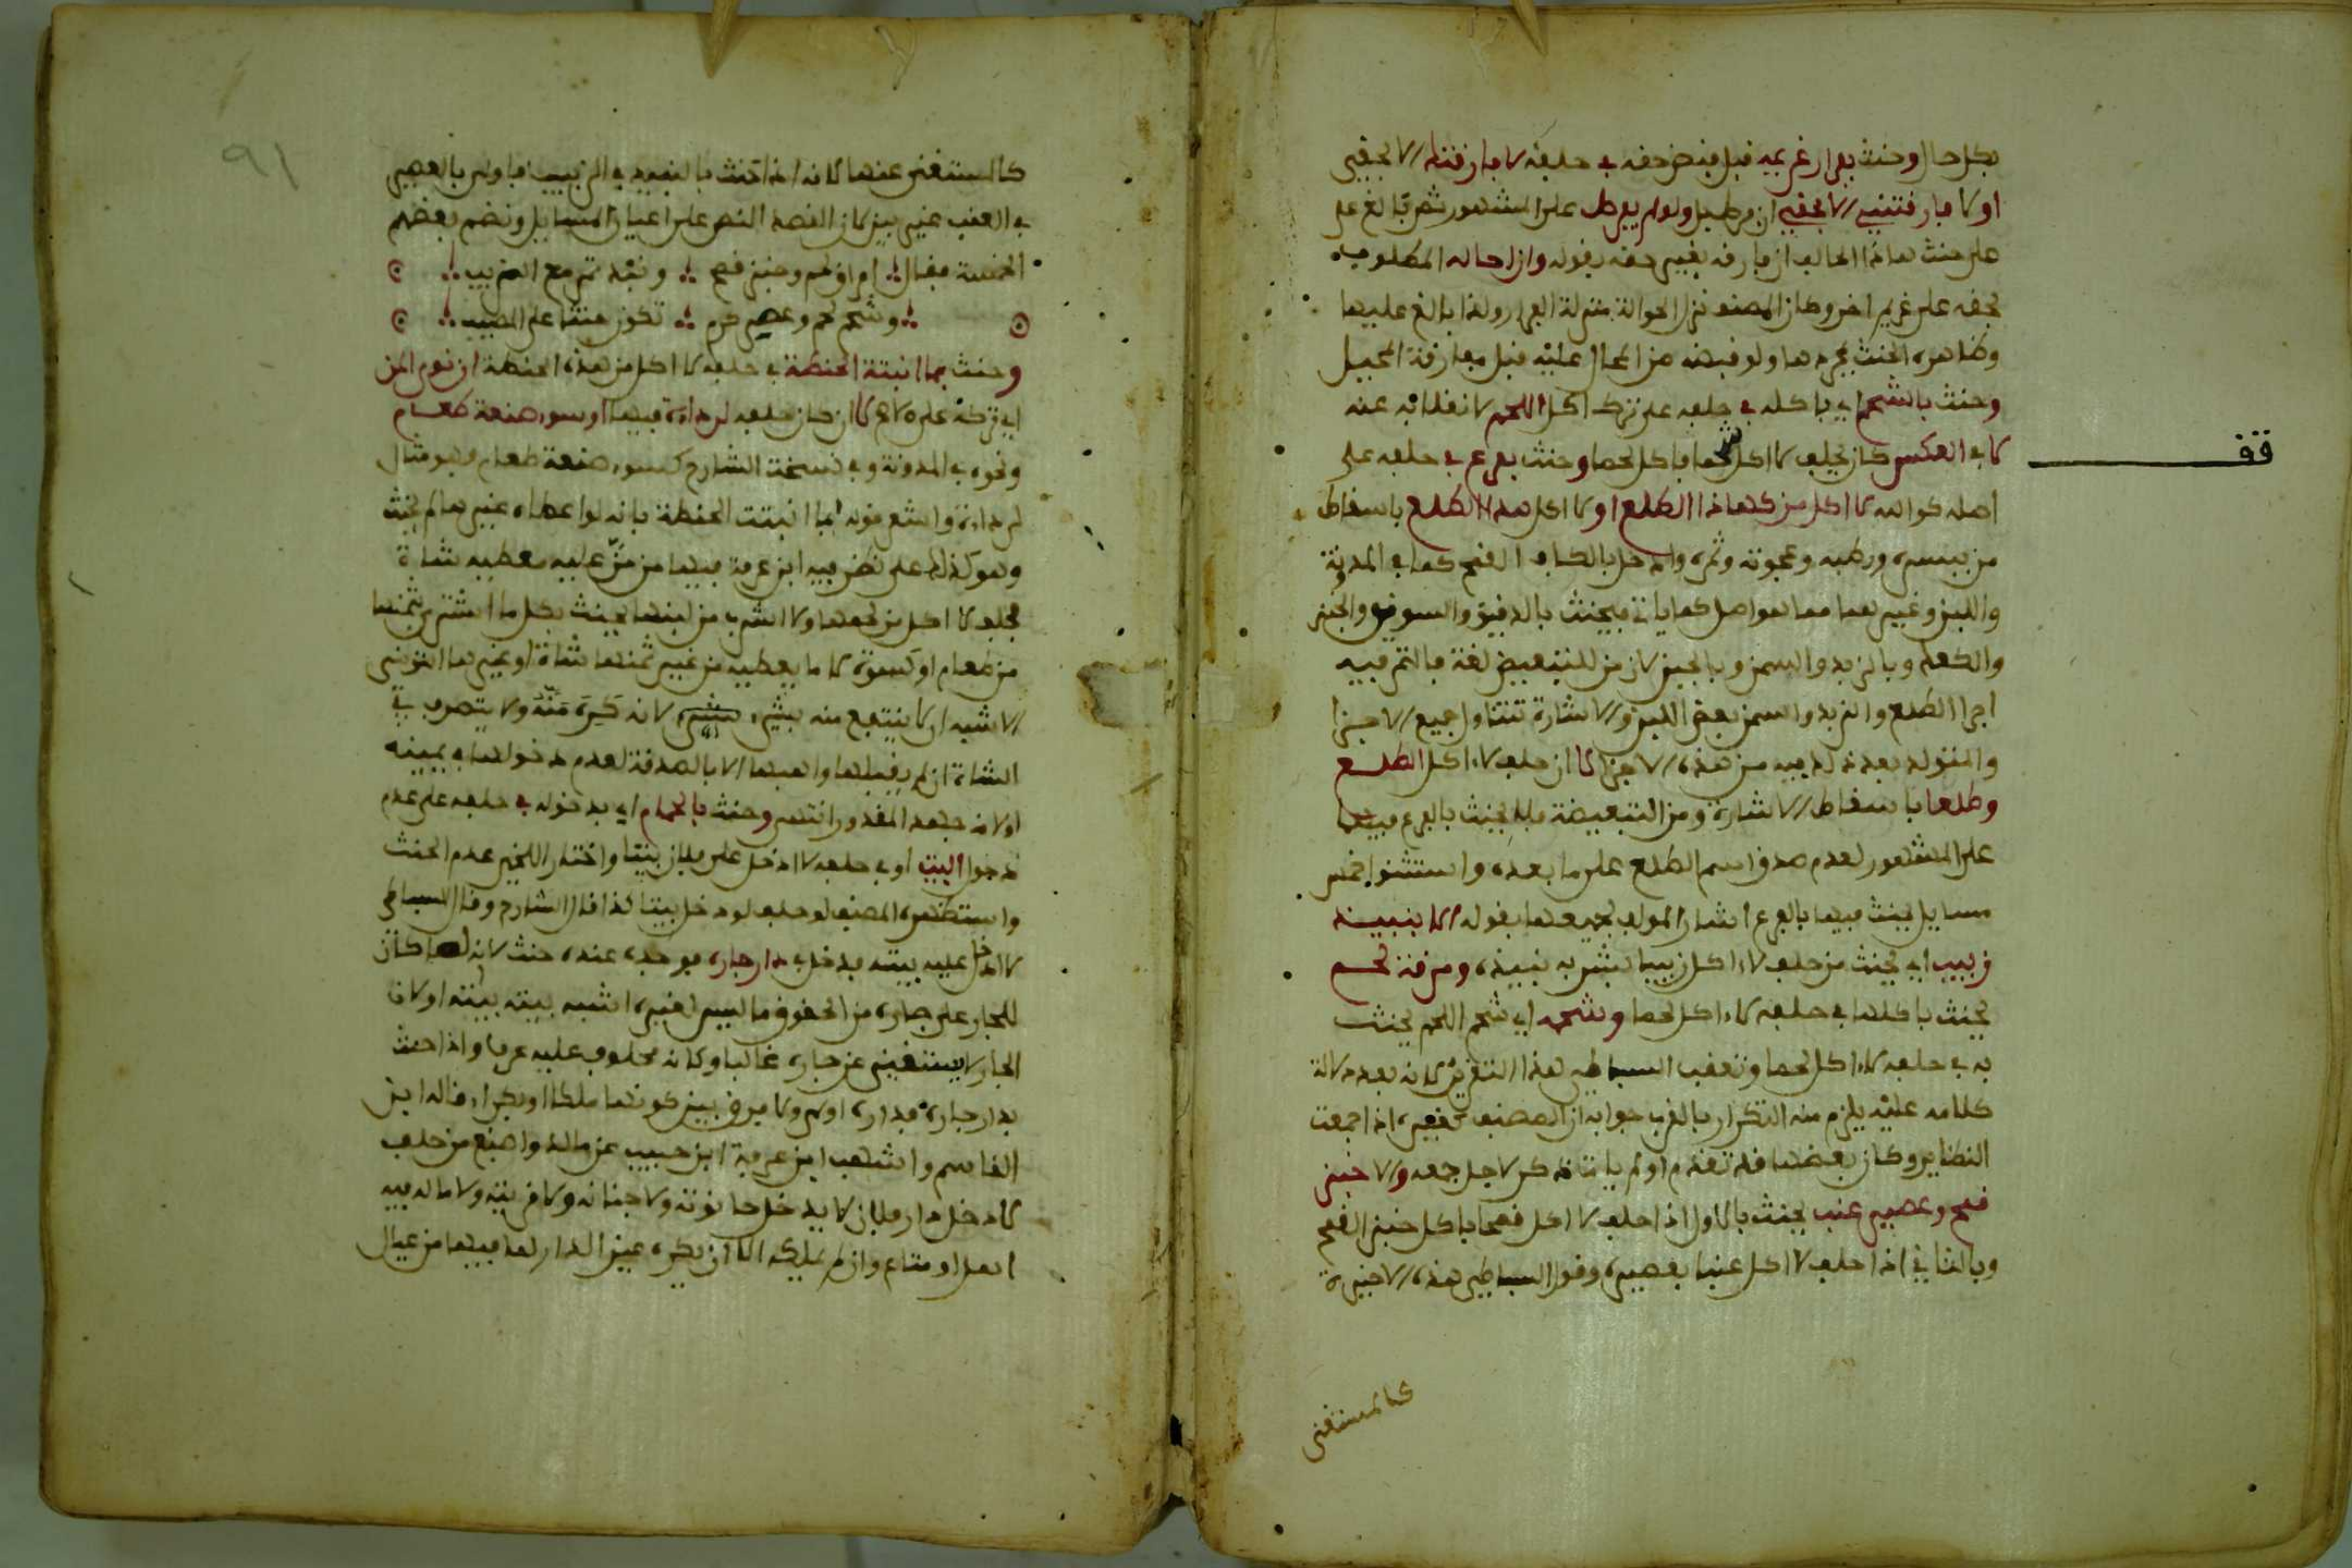 بكل حال وحنث بفرار غريمه قبل قبض حقه في حلفه لا فارقتك الا بحقي
او لا فارقتني الا بحقي ان فرط بل ولو لم يفرط على المشهور ثم بالغ على
على حنث هاذا الحالف ان فارقه بغير حقه بقوله وان احاله المطلوب
بحقه على غريم اخر وهاذا المصنف نزل الحوالة منزلة الفرار ولذا بالغ عليها
وظاهره الحنث بمجردها ولو قبضه من المحال عليه قبل مفارقة المحيل
وحنث بالشحم اي باكله في حلفه على ترك اكل اللحم لانقلابه عنه
لا في العكس كان يحلف لا اكل شحما فاكل لحما وحنث بفرع في حلفه على
اصله كوالله لا اكل من كهاذا الطلع او لا اكل هذا الطلع باسقاط
من ببسره ورطبه وعجوته وثمره وادخل بالكاف القمح كما في المدونة
واللبن وغيرهما مما هو اصل كما ياتي فيحنث بالدقيق والسويق والخبز
والكعك وبالزبد والسمن وبالجبن لان من للتبعيض لغة فالتمر فيه
اجزا الطلع والزبد والسمن بعض اللبن والاشارة تتناول جميع الاجزا
والمتولد بعد ذلك فيه من هذه الاجزا لا ان حلف لا اكل الطلع
وطلعا باسقاط الاشارة ومن التبعيضة فلا يحنث بالفرع فيهما
على المشهور لعدم صدق اسم الطلع على ما بعده واستثنوا خمس
مسايل يحنث فيها بالفرع اشار المولف لجميعها بقوله الا بنبيذ
زبيب اي يحنث من حلف لا اكل زبيبا بشربه نبيذه ومرقة لحم
يحنث باكلها في حلفه لا اكل لحما وشحمه اي شحم اللحم يحنث
به في حلفه لا اكل لحما وتعقب البساطي هذا التقرير لانه بعد دلالة
كلامه عليه يلزم منه التكرار بالقرب جوابه ان المصنف كغيره اذا جمعت
النظاير وكان بعضها قد تقدم او لم يات ذكر لاجل جمعه والا خبز
قمح وعصير عنب يحنث بالاول اذا حلف لا اكل قمحا باكل خبز القمح
وبالثاني اذا حلف لا اكل عنبا بعصيره وقول البساطي هذه الاخيرة
كالمستغنى
قف
٩١
كالمستغنى عنها لانه اذا حنث بالنبيذ في الزبيب فاولى بالعصير
في العنب غير بين لان القصد النص على اعيان المسايل ونضم بعضهم
الخمسة فقال امراق لحم وخبز قمح ونبذ تمر مع الزبيب
وشحم لحم وعصير كرم تكون حنثا على المصيب
وحنث بما انبتت الحنطة في حلفه لا اكل من هذه الحنطة ان نوى المن
اي تركه على لا ان كان حلفه لرداءة فيها او سوء صنعة طعام
ونحوه في المدونة وفي نسخة الشارح كسوء صنعة طعام وهو مثال
لرداءة واشعر قوله بما انبتت الحنطة بانه لو اعطاه غيرها لم يحنث
وهو كذلك على نظر فيه ابن عرفة فيها من من عليه معطيه شاة
فحلف لا اكل من لحمها ولا اشرب من لبنها يحنث بكل ما اشترى بثمنها
من طعام او كسوة لا ما يعطيه من غير ثمنها شاة او غيرها التونسي
الاشبه ان لا ينتفع منه بشيء لانه كره منه ولا يتصرف في
الشاة ان لم يقبلها واهبها الا بالصدقة لعدم دخولها في يمينه
او لانه جهد المقدور انتهى وحنث بالحمام اي بدخوله في حلفه على عدم
دخول البيت او في حلفه لا ادخل على فلان بيتا واختار اللخمي عدم الحنث
واستظهره المصنف لو حلف لا دخل بيتا كذا قال الشارح وقال البساطي
لا ادخل عليه بيته فدخل في دار جاره فوجده عنده حنث لانه لما كان
للجار على جاره من الحقوق ما ليس لغيره اشبه بيته بيته او لان
الجار لا يستغنى عن جاره غالبا وكانه محلوف عليه عرفا واذا حنث
بدار جاره فبداره اولى ولا فرق بين كونها ملكا او بكراء قاله ابن
القاسم واشهب ابن عرفة ابن حبيب عن مالك واصبغ من حلف
لا دخل دار فلان لا يدخل حانوته ولا جنانه ولا قريته ولا ما له فيه
اهل او متاع وان لم يملكه الا ان يكره عين الدار لما فيها من عيال